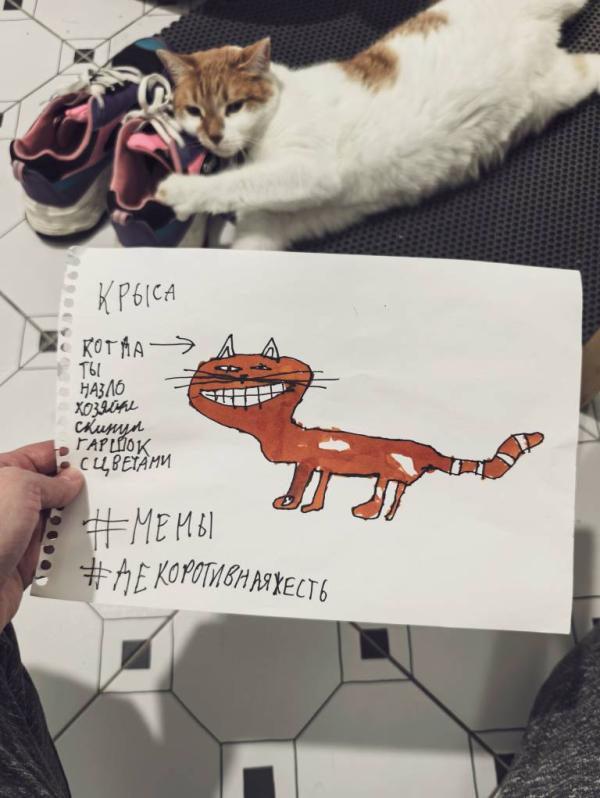 КРЫСА
КОГДА
ТЫ
НАЗЛО
ХОЗЯЙКЕ
СКИНУЛ
ГАРШОК
С ЦВЕТАМИ
#МЕМЫ
#ДЕКОРОТИВНАЯЖЕСТЬ